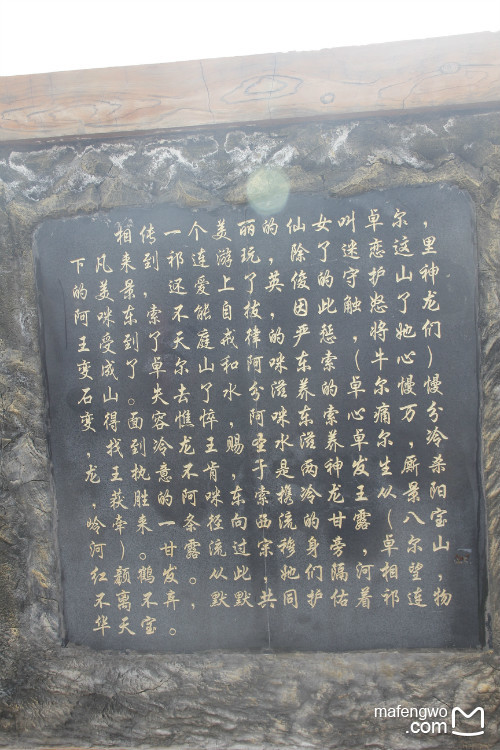 相传一个美丽的仙女叫卓尔,
下凡来到祁连游玩,除了迷恋这里
的美景,还爱上了英俊的守护山神
阿咪东索,不能自拔,因此触怒了龙
王受到了天庭戒律的严惩,将她们
变成了卓尔山和阿咪东索(牛心)
石山。失去了水分滋养的卓尔慢慢
变得面容憔悴,阿咪东索心痛万分
,找到冷龙王圣水滋养卓尔,冷
龙王执意不肯赐于是两神发生厮杀
,获胜的阿咪东索携冷龙王从景阳
岭牵来一条径向西流的甘露(八宝
河)。甘露流过宗穆身旁,卓尔山
红颜鹤发。从此,她们隔河相望,
不离不弃,默默共同护佑着祁连物
华天宝。
mafengwo
.com